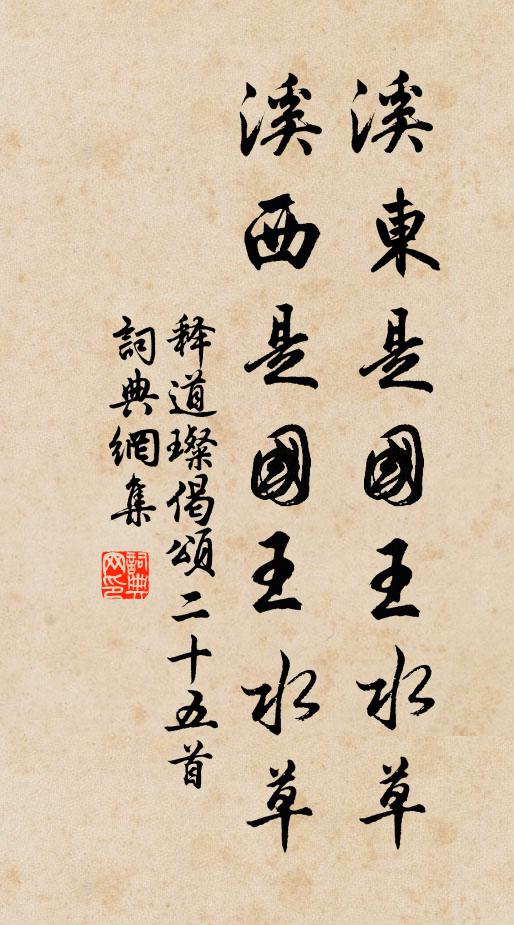 溪東是國王水草
溪西是國王水草
释道璨偈頌二十五首
詞典網集
詞典网印